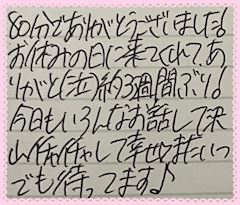 80分でありがとうございました!
お休みの日に来てくれて、あ
りがと(泣)約3週間ぶり!
今日もいろんなお話して沢
山イチャイチャして幸せ またいつ
でも待ってます♪